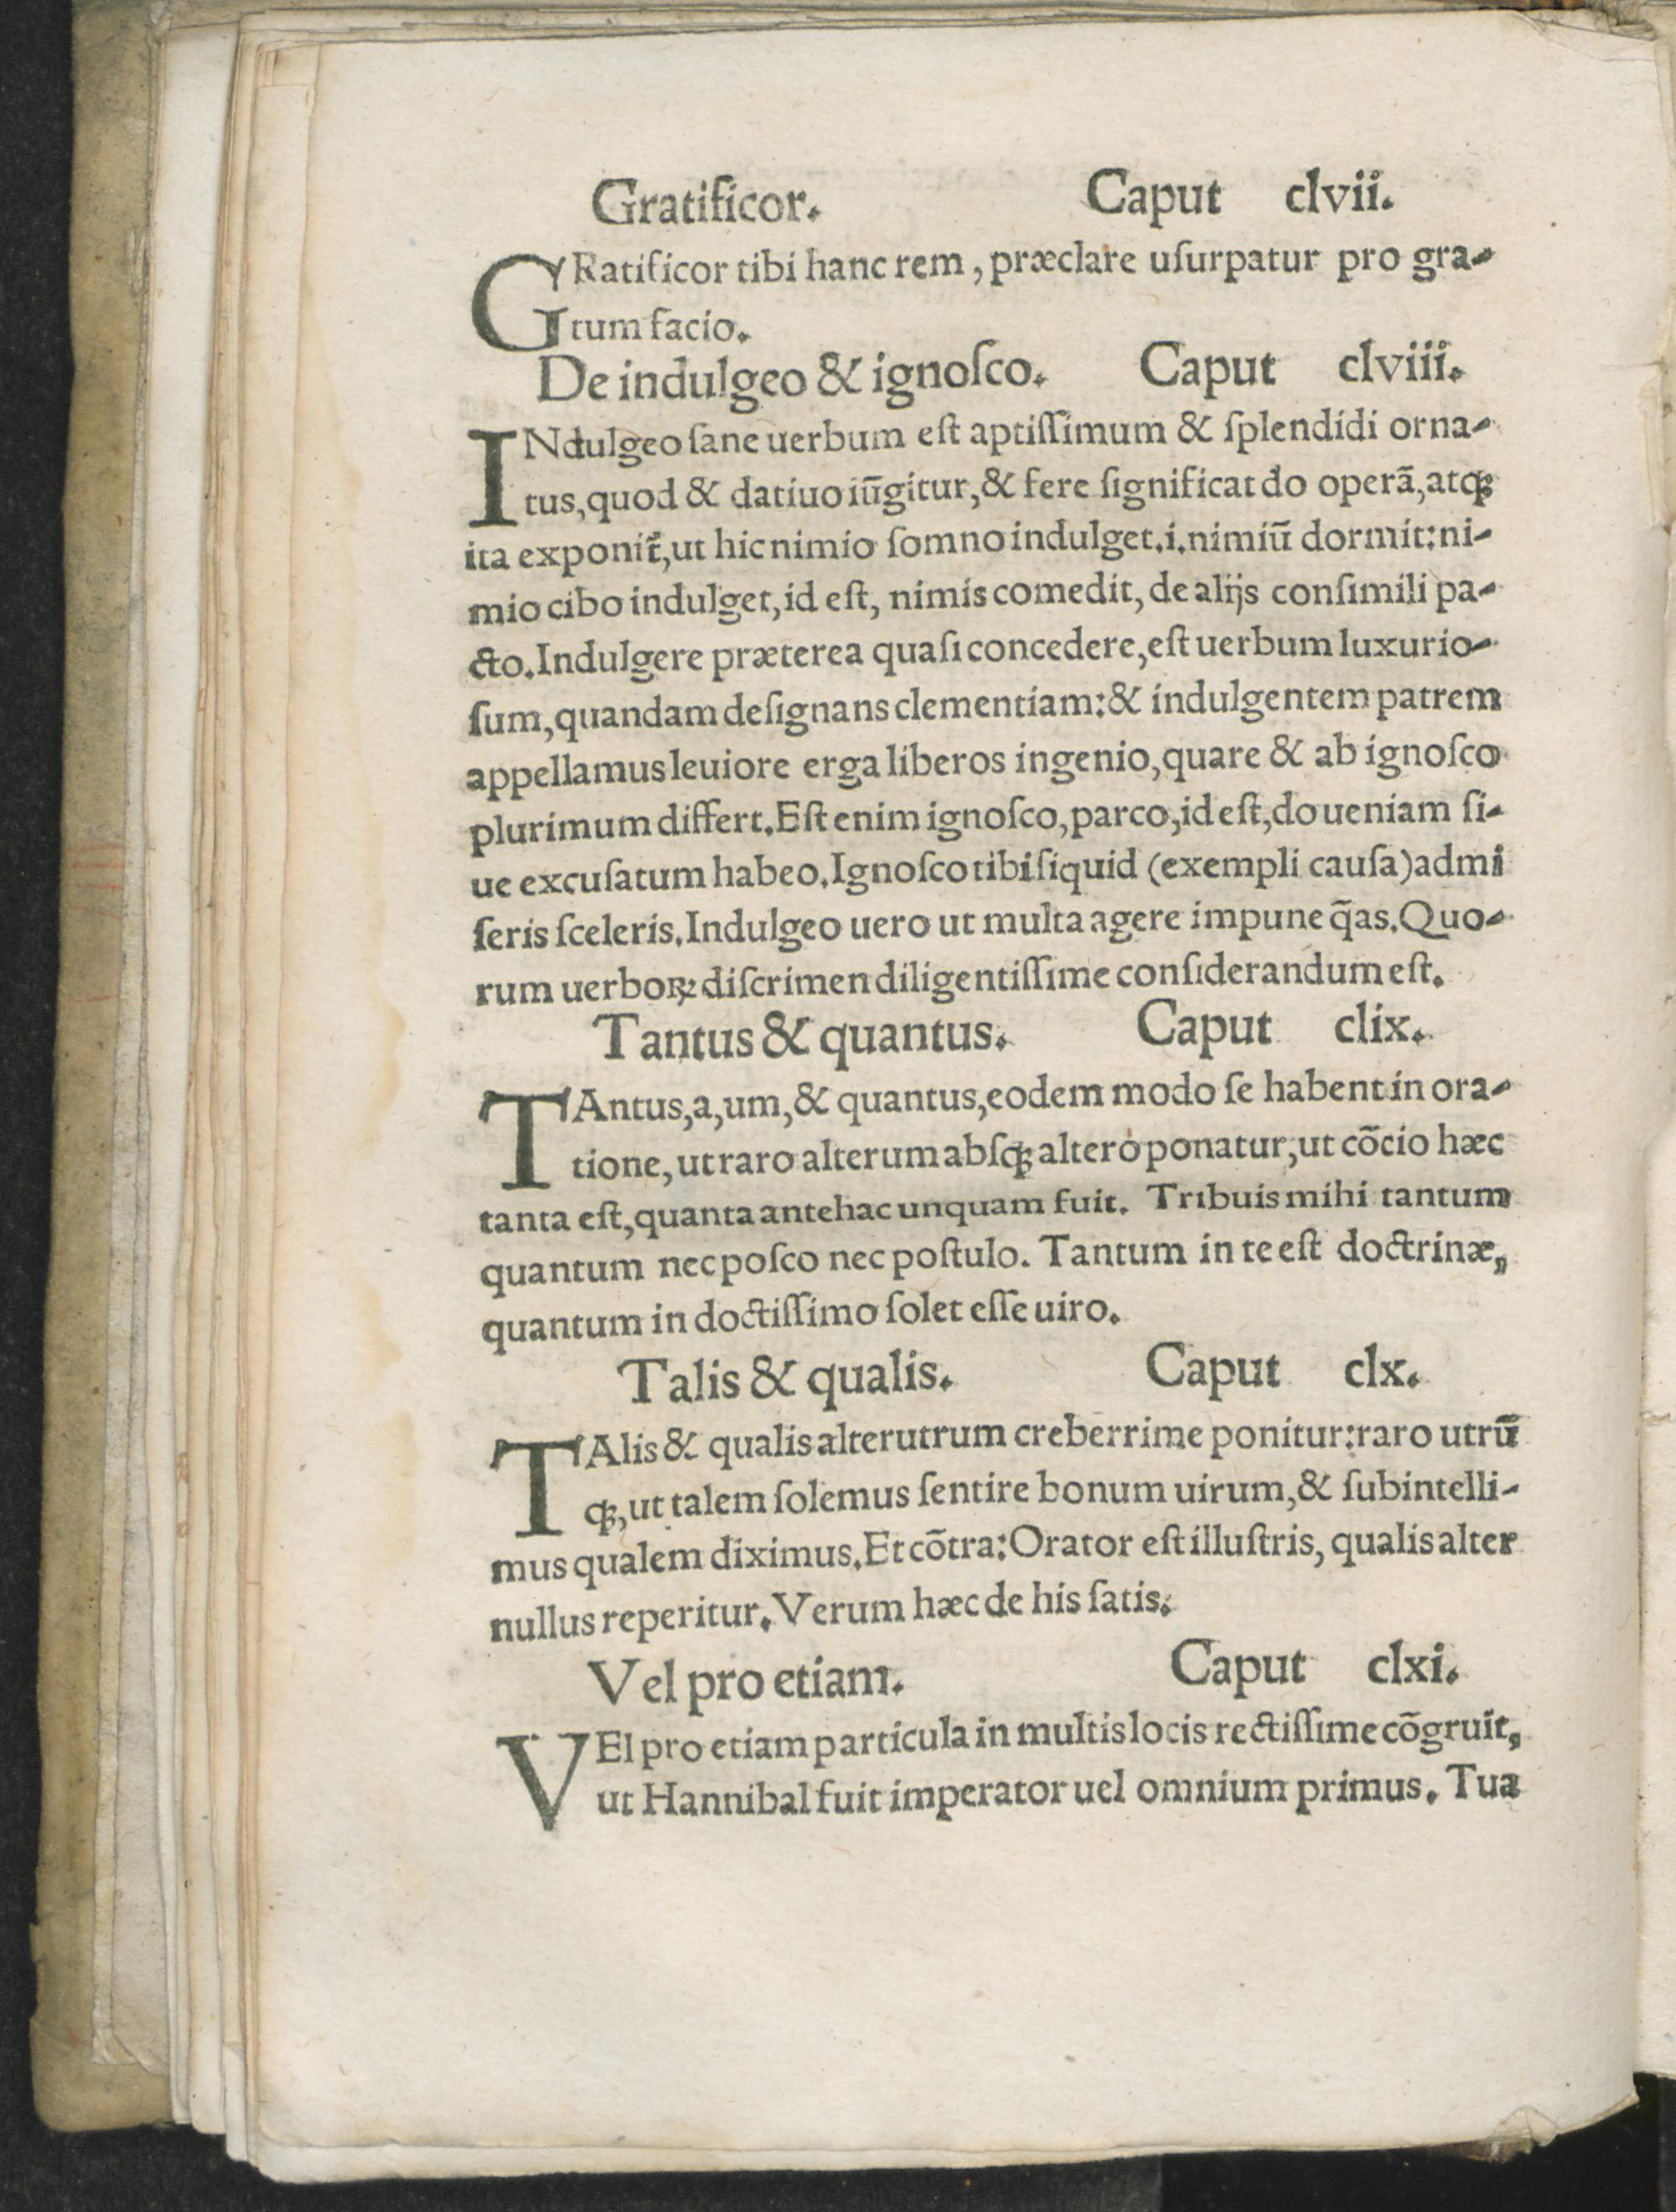 Gratificor. Caput clvii.
GRatificor tibi hanc rem, præclare uſurpatur pro gra-
tum facio.
De indulgeo & ignoſco. Caput clviii.
INdulgeo ſane uerbum eſt aptiſſimum & ſplendidi orna-
tus, quod & datiuo iūgitur, & fere ſignificat do operā, atqꝫ
ita exponit̃, ut hic nimio ſomno indulget.i.nimiū dormit: ni-
mio cibo indulget, id eſt, nimis comedit, de alijs conſimili pa-
cto. Indulgere præterea quaſi concedere, eſt uerbum luxurio-
ſum, quandam deſignans clementiam: & indulgentem patrem
appellamus leuiore erga liberos ingenio, quare & ab ignoſco
plurimum differt. Eſt enim ignoſco, parco, id eſt, do ueniam ſi-
ue excuſatum habeo. Ignoſco tibi ſiquid (exempli cauſa) admi
ſeris ſceleris. Indulgeo uero ut multa agere impune q̄as. Quo-
rum uerboꝝ diſcrimen diligentiſſime conſiderandum eſt.
Tantus & quantus. Caput clix.
TAntus, a, um, & quantus, eodem modo ſe habent in ora-
tione, ut raro alterum abſqꝫ altero ponatur, ut cōcio hæc
tanta eſt, quanta antehac unquam fuit. Tribuis mihi tantum
quantum nec poſco nec poſtulo. Tantum in te eſt doctrinæ,
quantum in doctiſſimo ſolet eſſe uiro.
Talis & qualis. Caput clx.
TAlis & qualis alterutrum creberrime ponitur: raro utrū
qꝫ, ut talem ſolemus ſentire bonum uirum, & ſubintelli-
mus qualem diximus. Et cōtra: Orator eſt illuſtris, qualis alter
nullus reperitur. Verum hæc de his ſatis.
Vel pro etiam. Caput clxi.
VEl pro etiam particula in multis locis rectiſſime cōgruit,
ut Hannibal fuit imperator uel omnium primus. Tua